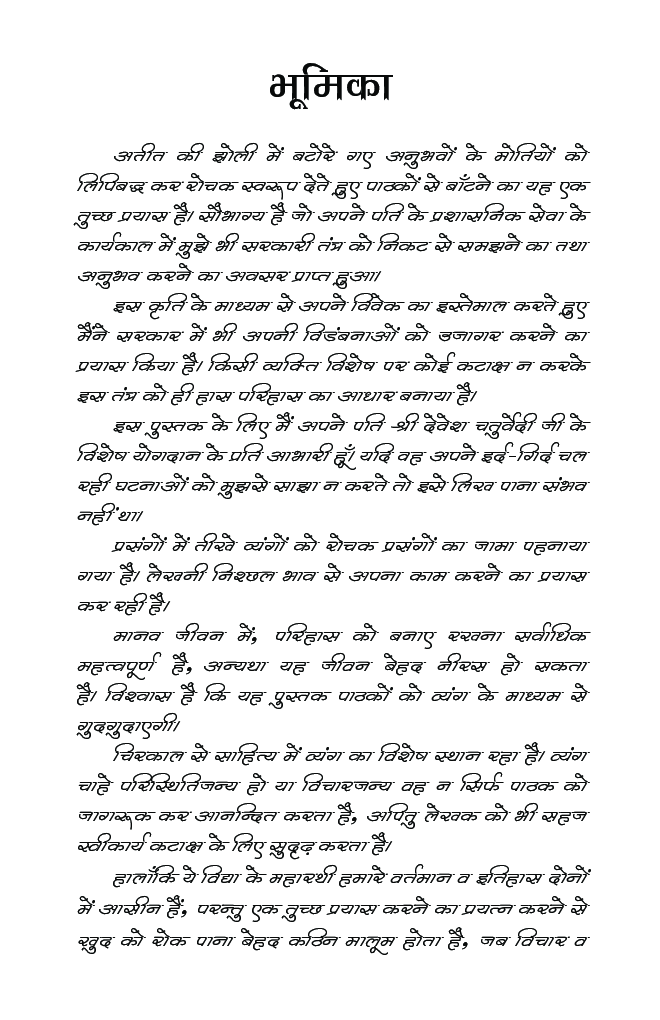 भूमिका
अतीत की झोली में बटोरे गए अनुभवों के मोतियों को
लिपिबद्ध कर रोचक स्वरूप देते हुए पाठकों से बाँटने का यह एक
तुच्छ प्रयास है। सौभाग्य है जो अपने पति के प्रशासनिक सेवा के
कार्यकाल में मुझे भी सरकारी तंत्र को निकट से समझने का तथा
अनुभव करने का अवसर प्राप्त हुआ।
इस कृति के माध्यम से अपने विवेक का इस्तेमाल करते हुए
मैंने सरकार में भी अपनी विडंबनाओं को उजागर करने का
प्रयास किया है। किसी व्यक्ति विशेष पर कोई कटाक्ष न करके
इस तंत्र को ही हास परिहास का आधार बनाया है।
इस पुस्तक के लिए मैं अपने पति श्री देवेश चतुर्वेदी जी के
विशेष योगदान के प्रति आभारी हूँ। यदि वह अपने इर्द-गिर्द चल
रही घटनाओं को मुझसे साझा न करते तो इसे लिख पाना संभव
नहीं था।
प्रसंगों में तीखे व्यंगों को रोचक प्रसंगों का जामा पहनाया
गया है। लेखनी निश्छल भाव से अपना काम करने का प्रयास
कर रही है।
मानव जीवन में, परिहास को बनाए रखना सर्वाधिक
महत्वपूर्ण है, अन्यथा यह जीवन बेहद नीरस हो सकता
है। विश्वास है कि यह पुस्तक पाठकों को व्यंग के माध्यम से
गुदगुदाएगी।
चिरकाल से साहित्य में व्यंग का विशेष स्थान रहा है। व्यंग
चाहे परिस्थितिजन्य हो या विचारजन्य वह न सिर्फ पाठक को
जागरूक कर आनन्दित करता है, अपितु लेखक को भी सहज
स्वीकार्य कटाक्ष के लिए सुदृढ़ करता है।
हालाँकि ये विद्या के महारथी हमारे वर्तमान व इतिहास दोनों
में आसीन हैं, परन्तु एक तुच्छ प्रयास करने का प्रयत्न करने से
खुद को रोक पाना बेहद कठिन मालूम होता है, जब विचार व